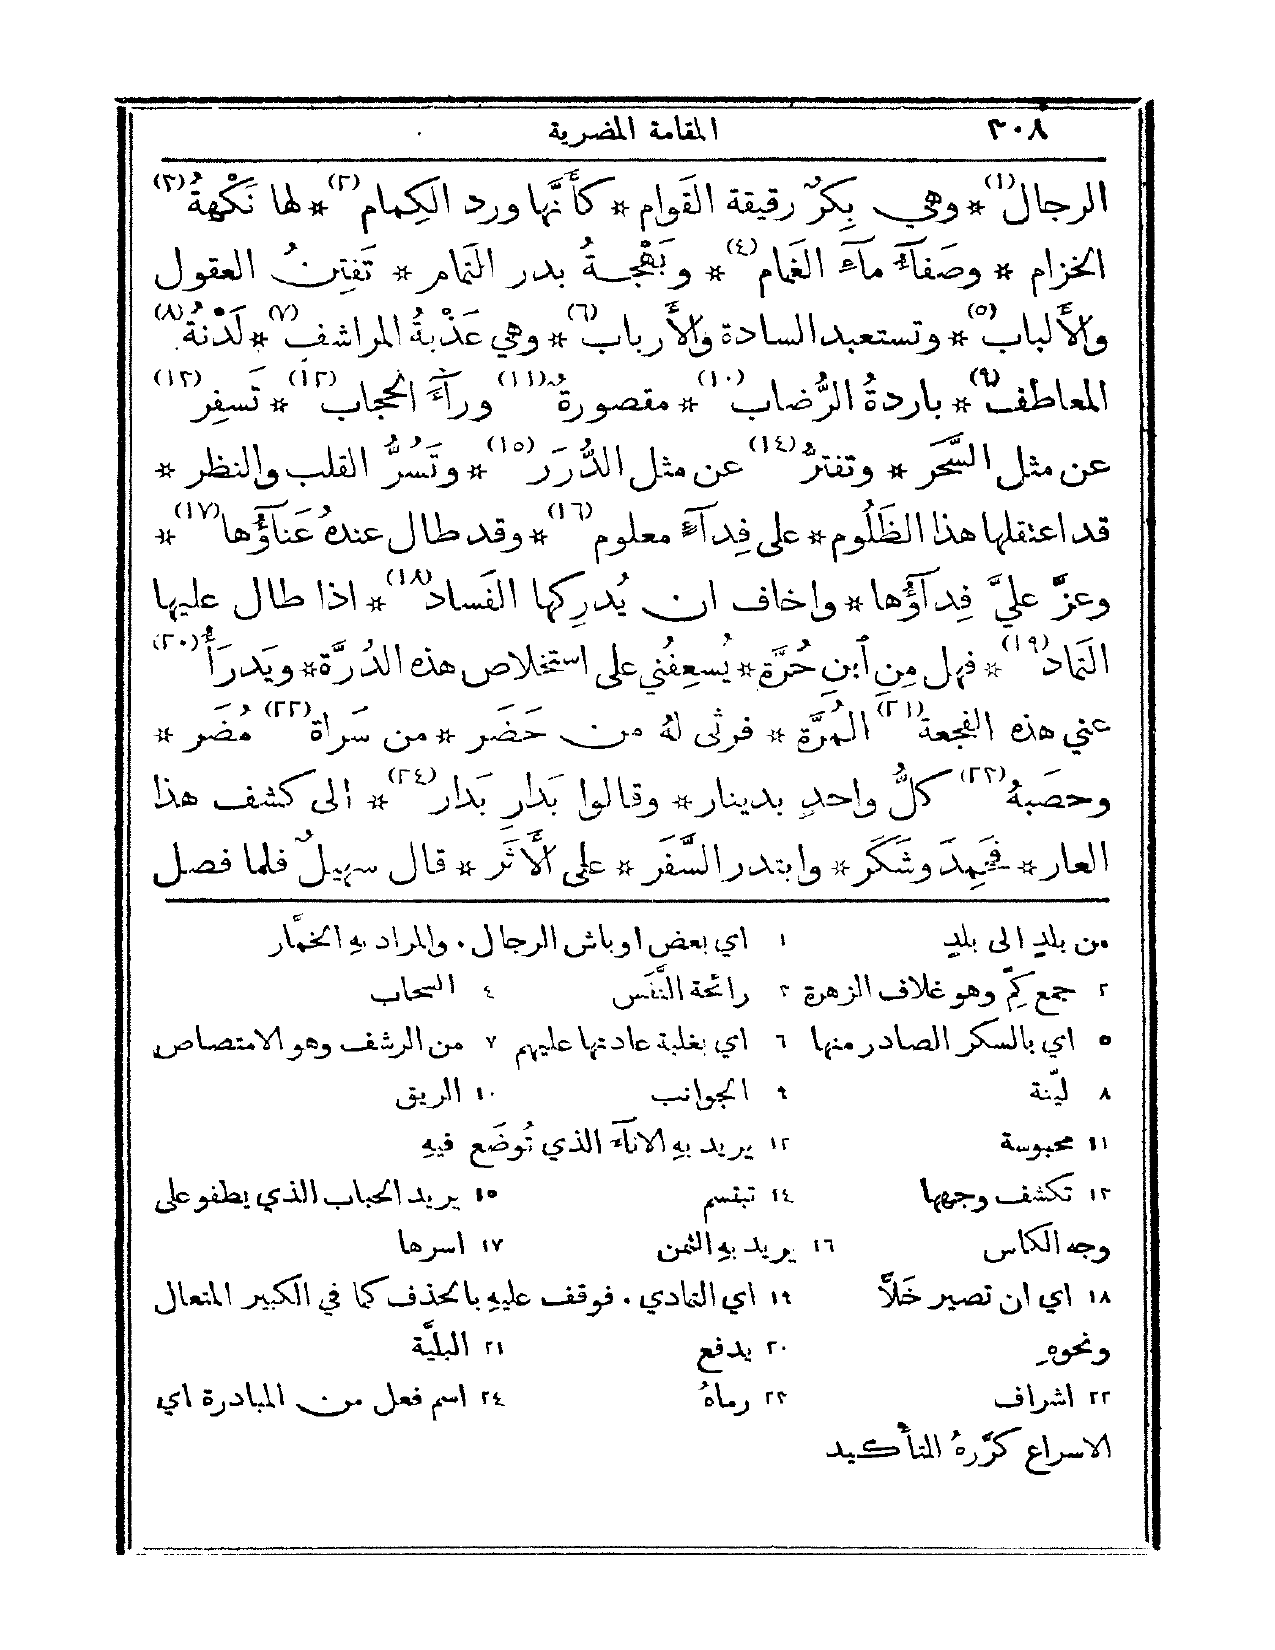 ٣٠٨ المقامة المضرية
الرجال(١) * وهي بِكرٌ رقيقة القَوام * كأَنَّها ورد الكِمام(٢) * لها نَكْهةُ(٣)
الخزام * وصَفآءُ مآءِ الغَمام(٤) * وبَهْجةُ بدر التَمام * تَفتِنُ العقول
والأَلباب(٥) * وتستعبد السادة والأَرباب(٦) * وهي عَذْبةُ المراشفِ(٧) * لَدْنةُ(٨)
المعاطف(٩) * باردةُ الرُّضاب(١٠) * مقصورةٌ(١١) ورآءَ الحجاب(١٢) * تَسفِر(١٣)
عن مثل السَّحَر * وتفترُّ(١٤) عن مثل الدُّرَر(١٥) * وتَسُرُّ القلب والنظر *
قد اعتقلها هذا الظَلُوم * على فِدآءٍ معلوم(١٦) * وقد طال عندهُ عَنآؤُها(١٧) *
وعزَّ عليَّ فِدآؤُها * واخاف ان يُدرِكها الفَساد(١٨) * اذا طال عليها
التَماد(١٩) * فهل مِن ٱبن حُرَّة * يُسعِفُني على استخلاص هذه الدُرَّة * ويَدرَأُ(٢٠)
عني هذه الفجعة(٢١) المُرَّة * فرثى لهُ من حَضَر * من سَراة(٢٢) مُضَر *
وحصَبهُ(٢٣) كلُّ واحدٍ بدينار * وقالوا بَدارِ بَدار(٢٤) * الى كشف هذا
العار * فحَمِدَ وشَكَر * وابتدر السَّفَر * على الأَثَر * قال سهيلٌ فلما فصل
من بلدٍ الى بلدٍ ١ اي بعض اوباش الرجال . والمراد بهِ الخمَّار
٢ جمع كِمّ وهو غلاف الزهرة ٣ رائحة النَّفَس ٤ السحاب
٥ اي بالسكر الصادر منها ٦ اي بغلبة عادتها عليهم ٧ من الرشف وهو الامتصاص
٨ ليّنة ٩ الجوانب ١٠ الريق
١١ محبوسة ١٢ يريد بهِ الانآءَ الذي تُوضَع فيهِ
١٣ تكشف وجهها ١٤ تبتسم ١٥ يريد الحباب الذي يطفو على
وجه الكاس ١٦ يريد بهِ الثمن ١٧ اسرها
١٨ اي ان تصير خَلًّا ١٩ اي التمادي . فوقف عليهِ بالحذف كما في الكبير المتعال
ونحوهِ ٢٠ يدفع ٢١ البليَّة
٢٢ اشراف ٢٣ رماهُ ٢٤ اسم فعل من المبادرة اي
الاسراع كرَّرهُ للتأكيد